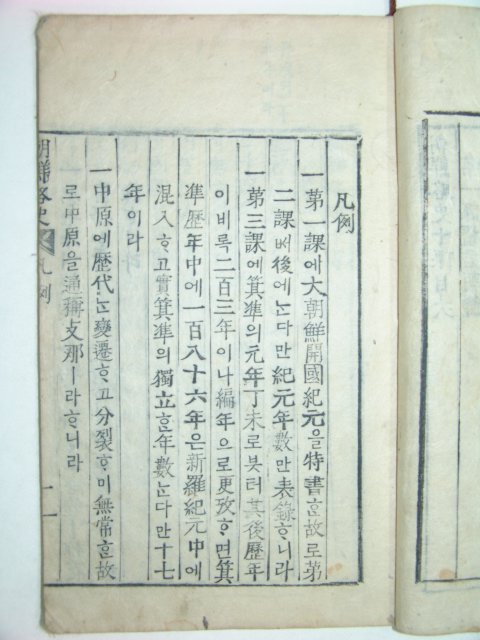 凡例
一第一課에大朝鮮開國紀元을特書ᄒᆞᆫ故로第
二課ᄇᆞ터後에ᄂᆞᆫ다만紀元年數만表錄ᄒᆞ니라
一第三課에箕準의元年丁未로붓터其後歷年
이비록二百三年이나編年으로更攷ᄒᆞ면箕
準歷年中에一百八十六年은新羅紀元中에
混入ᄒᆞ고實箕準의獨立ᄒᆞᆫ年數ᄂᆞᆫ다만十七
年이라
一中原에歷代ᄂᆞᆫ變遷ᄒᆞ고分裂ᄒᆞ미無常ᄒᆞᆫ故
로中原을通稱支那ㅣ라ᄒᆞ니라
朝鮮略史 凡例 二